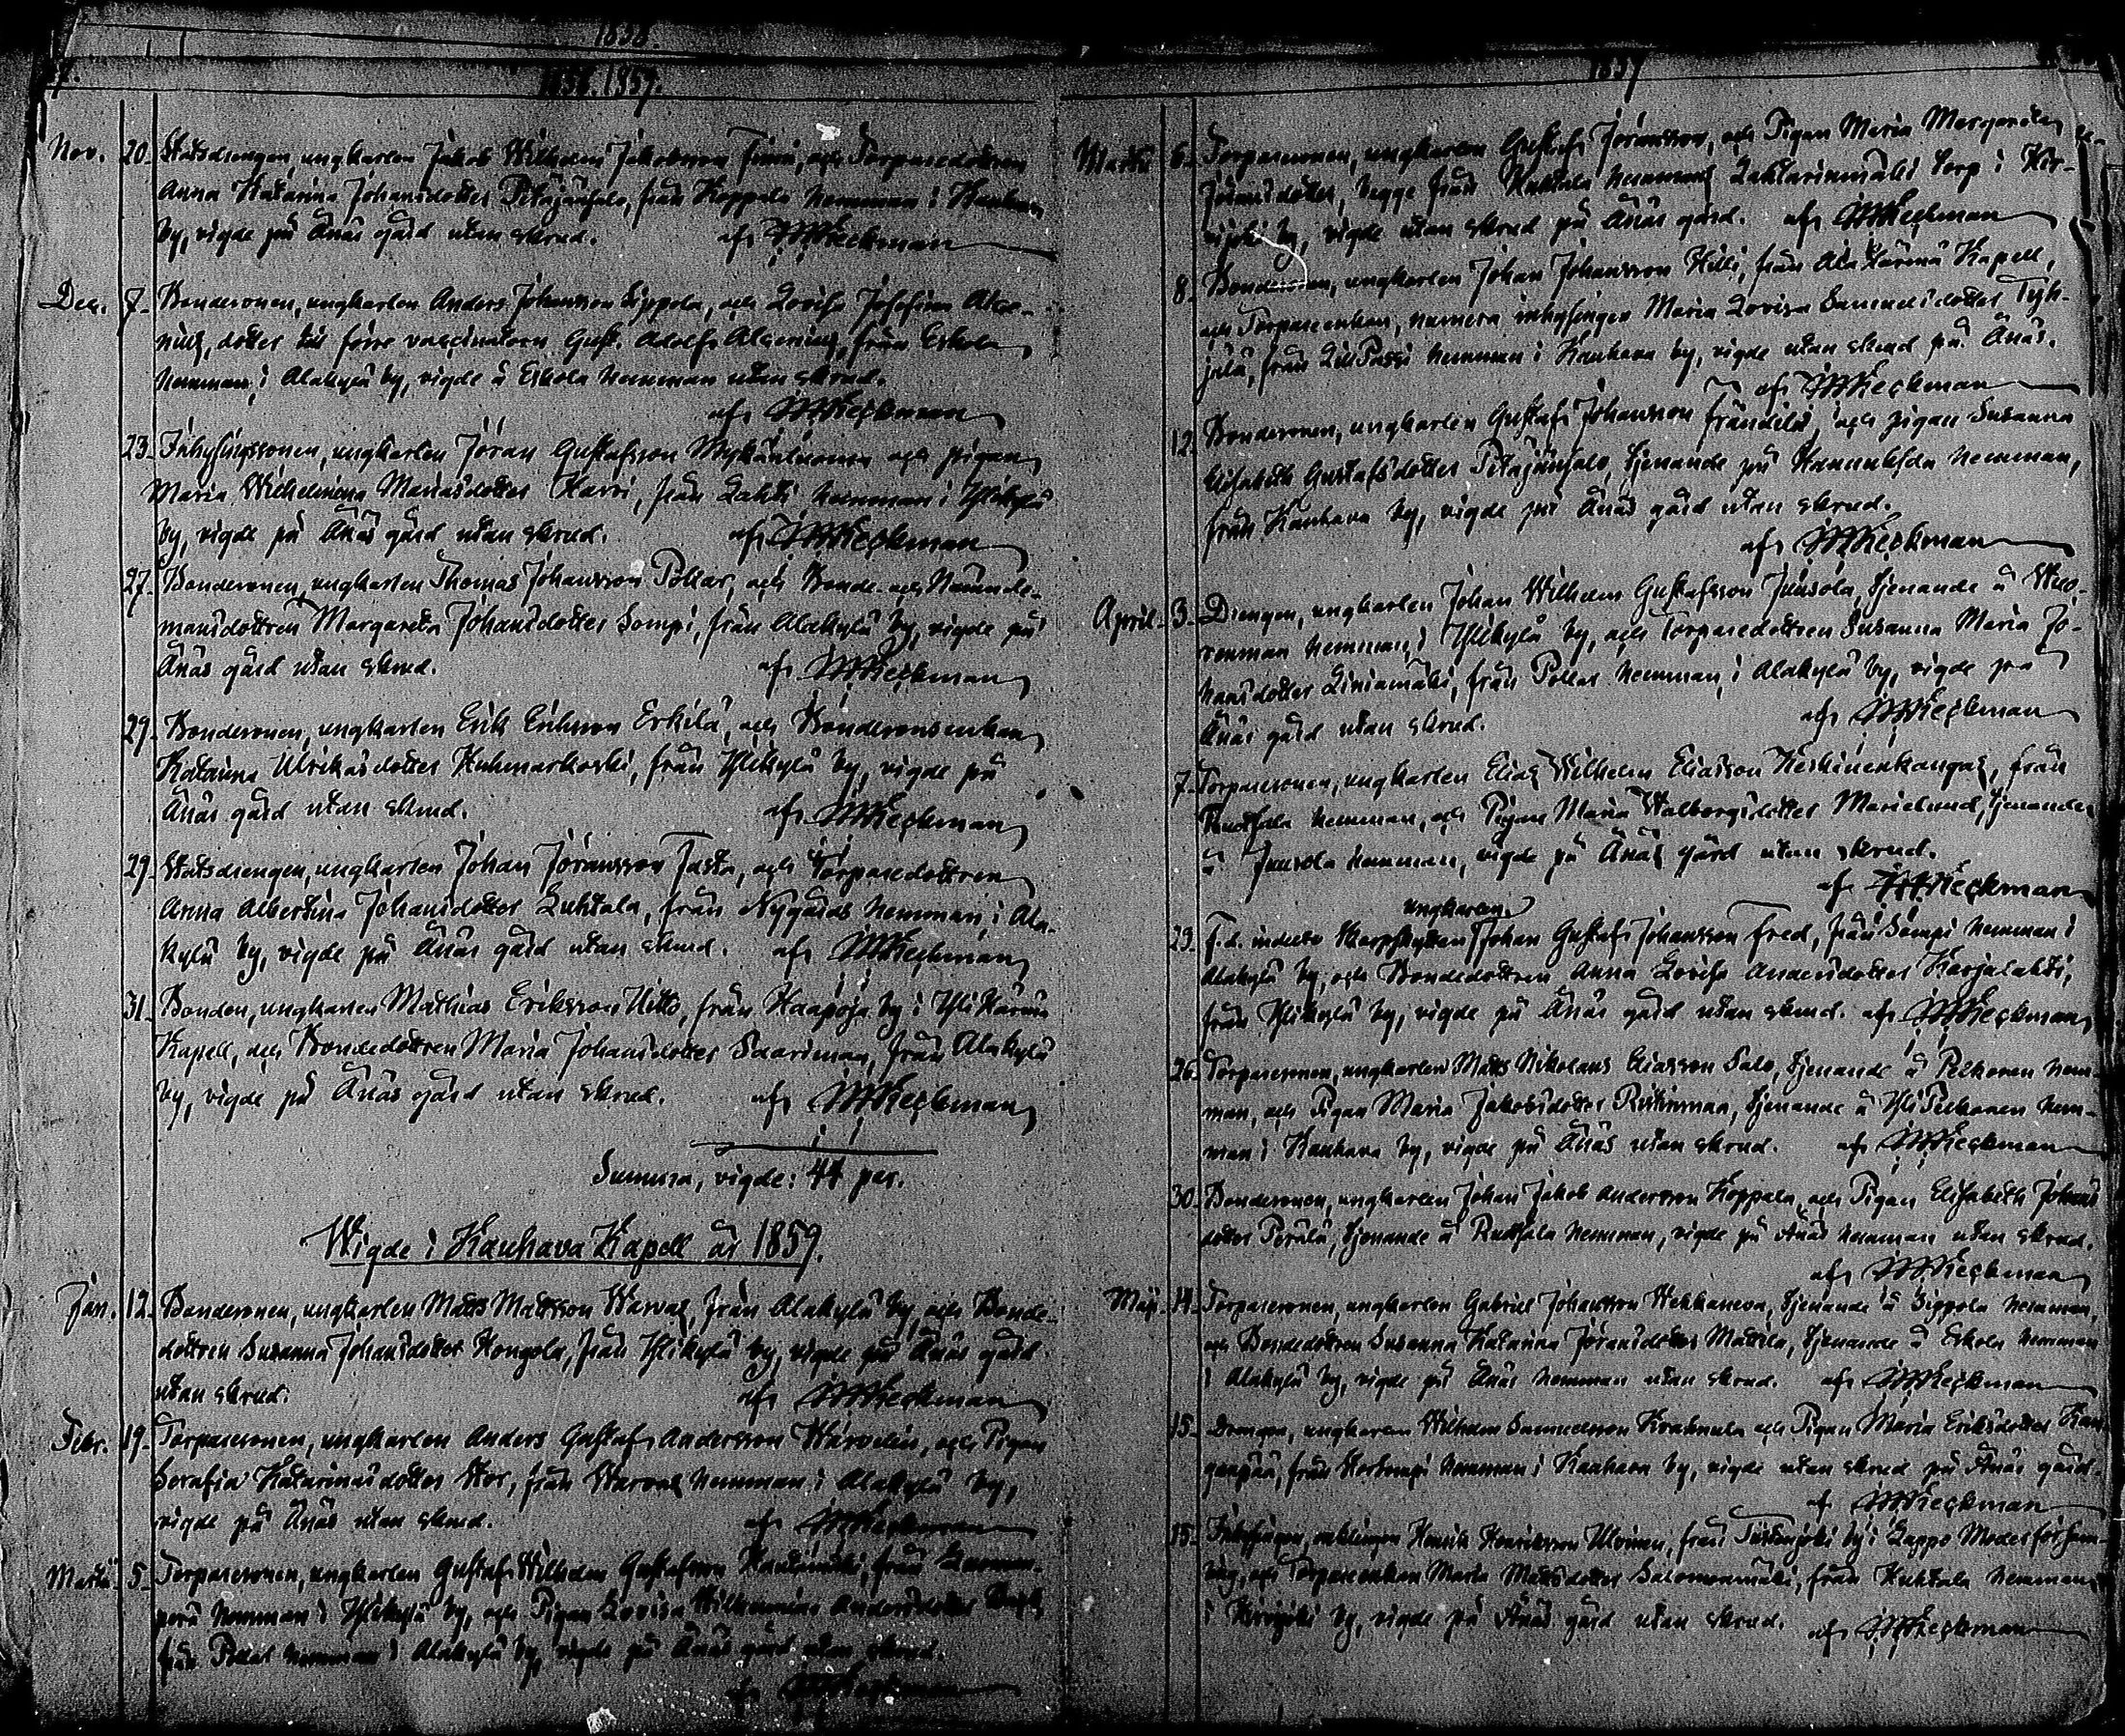 1858.
1858. 1859.
Nov. 20. Statsdrengen, ungkarlen Jakob Wilhelm Jakobsson Finni, och Torparedottren
Anna Katarina Johansdotter Petäjänsalo, från Koppala hemman i Kauhava
by, vigde på Ånäs gård utan skrud. af
Dec. 7. Bondesonen, ungkarlen Anders Johansson Sippola, och Lovisa Josefina Alce-
nius, dotter till förre vaccinatorn Gust. Adolf Alcenius, från Eskola
hemman i Alakylä by, vigde å Eskola hemman utan skrud.
af
23. Inhysingssonen, ungkarlen Jöran Gustafsson och pigan
Maria Wilhelmina Mariasdotter Harri, från Lahti hemman i Ylikylä
by, vigde på Ånäs gård utan skrud. af
27. Bondesonen, ungkarlen Thomas Johansson Pollar, och Bonde- och Nämnde-
mansdottren Margareta Johansdotter Sompi, från Alakylä by, vigde på
Ånäs gård utan skrud. af
29. Bondesonen, ungkarlen Erik Eriksson Erkilä, och Bondesonsenkan
Katarina Ulrikasdotter Kuhmarkoski, från Ylikylä by, vigde på
Ånäs gård utan skrud. af
29. Statsdrengen, ungkarlen Johan Jöransson Tasta, och Torparedottren
Anna Albertina Johansdotter Luhtala, från Nygårds hemman i Ala-
kylä by, vigde på Ånäs gård utan skrud. af
31. Bonden, ungkarlen Mathias Eriksson Uitto, från Haapoja by i Yli Härmä
Kapell, och Bondedottren Maria Johansdotter Saariman, från Alakylä
by, vigde på Ånäs gård utan skrud. af
Summa, vigde: 44 par.
Wigde i Kauhava Kapell år 1859.
Jan. 12. Bondesonen, ungkarlen Matts Mattsson Warvas, från Alakylä by, och Bonde-
dottren Susanna Johansdotter Kongola, från Ylikylä by, vigde på Ånäs gård
utan skrud. af
Febr. 19. Torparesonen, ungkarlen Anders Gustaf Andersson Warvelin, och Pigan
Serafia Katarinasdotter Stor, från Warvas hemman i Alakylä by,
vigde på Ånäs utan skrud. af
Martii 5. Torparesonen, ungkarlen Gustaf Wilhelm Gustafsson från
hemman i Ylikylä by, och Pigan Lovisa Wilhelmina Andersdotter
från Pollar hemman i Alakylä by, vigde på Ånäs gård utan skrud.
af
1859
Martii 6. Torparesonen, ungkarlen Gustaf Jöransson, och Pigan Maria Margareta
Jöransdotter, begge från Huhtala hemmans Laktarinmäki torp i Kir-
vijoki by, vigde utan skrud på Ånäs gård. af
8. Bondesonen, ungkarlen Johan Johansson Hilli, från Ala Härmä Kapell,
och Torpareenkan, numera inhysingen Maria Lovisa Samuelsdotter Tyh-
jälä, från Lill Passi hemman i Kauhava by, vigde utan skrud på Ånäs.
af
12. Bondesonen, ungkarlen Gustaf Johansson Frändilä, och pigan Susanna
Elisabeth Gustafsdotter Petäjänsalo, tjenande på Hannuksela hemman,
från Kauhava by, vigde på Ånäs gård utan skrud.
af
April 3. Drengen, ungkarlen Johan Wilhelm Gustafsson Juusola, tjenande å Wuo-
renmaa hemman i Ylikylä by, och Torparedottren Susanna Maria Jo-
hansdotter Liniamäki, från Pollar hemman, i Alakylä by, vigde på
Ånäs gård utan skrud. af
7. Torparesonen, ungkarlen Elias Wilhelm Eliasson Heikinenkangas, från
Ruotsala hemman, och Pigan Maria Walborgsdotter Marielund, tjenande
å Juusola hemman, vigde på Ånäs gård utan skrud.
af
ungkarlen
23. F.d. indelte Skarpskytten Johan Gustaf Johansson Fred, från Sompi hemman i
Alakylä by, och Bondedottren Anna Lovisa Andersdotter Karjalahti,
från Ylikylä by, vigde på Ånäs gård utan skrud. af
26. Torparesonen, ungkarlen Matts Nikolaus Eliasson Salo, tjenande å Pelkonen hem-
man, och Pigan Maria Jakobsdotter Ritinman, tjenande å Yli Pelkonen hem-
man i Kauhava by, vigde på Ånäs utan skrud. af
30. Bondesonen, ungkarlen Johan Jakob Andersson Koppala, och Pigan Elisabeth Johans
dotter Perälä, tjenande å Ruotsala hemman, vigde på Ånäs hemman utan skrud.
af
Maji 14. Torparesonen, ungkarlen Gabriel Johansson Hekkanen, tjenande å Sippola hemman,
och Bondedottren Susanna Katarina Jöransdotter Mattila, tjenande å Eskola hemman
i Alakylä by, vigde på Ånäs hemman utan skrud. af
15. Drengen, ungkarlen Wilhelm Samuelsson och Pigan Maria Eriksdotter Kan-
gaspää, från hemman i Kauhava by, vigde utan skrud på Ånäs gård.
af
15. Inhysingen, enklingen Henrik Henriksson Ulvinen, från by i Lappo Moderförsam-
ling, och Torpareenkan Maria Mattsdotter Salomonmäki, från Huhtala hemman
i Kirvijoki by, vigde på Ånäs gård utan skrud. af